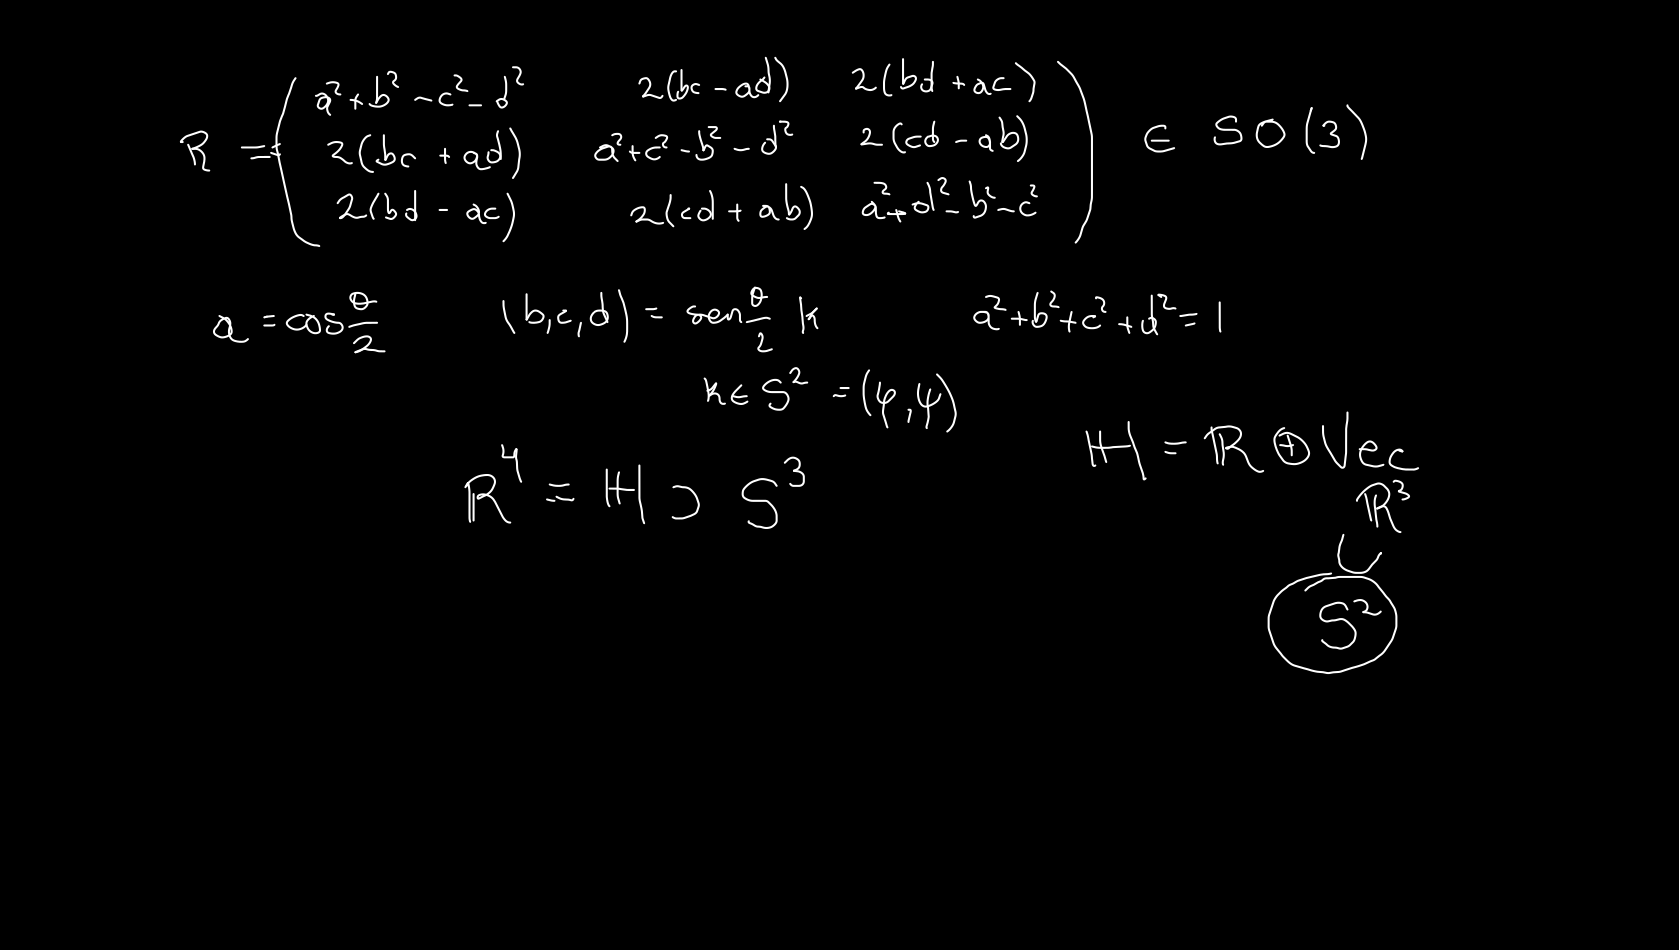 R = ( a²+b²-c²-d² 2(bc-ad) 2(bd+ac)
2(bc+ad) a²+c²-b²-d² 2(cd-ab) ) ∈ SO(3)
2(bd-ac) 2(cd+ab) a²+d²-b²-c²
a = cos θ/2 (b,c,d) = sen θ/2 k a²+b²+c²+d²=1
k∈S² = (φ,ψ)
ℍ = ℝ ⊕ Vec
ℝ⁴ = ℍ ⊃ S³
ℝ³
∪
S²